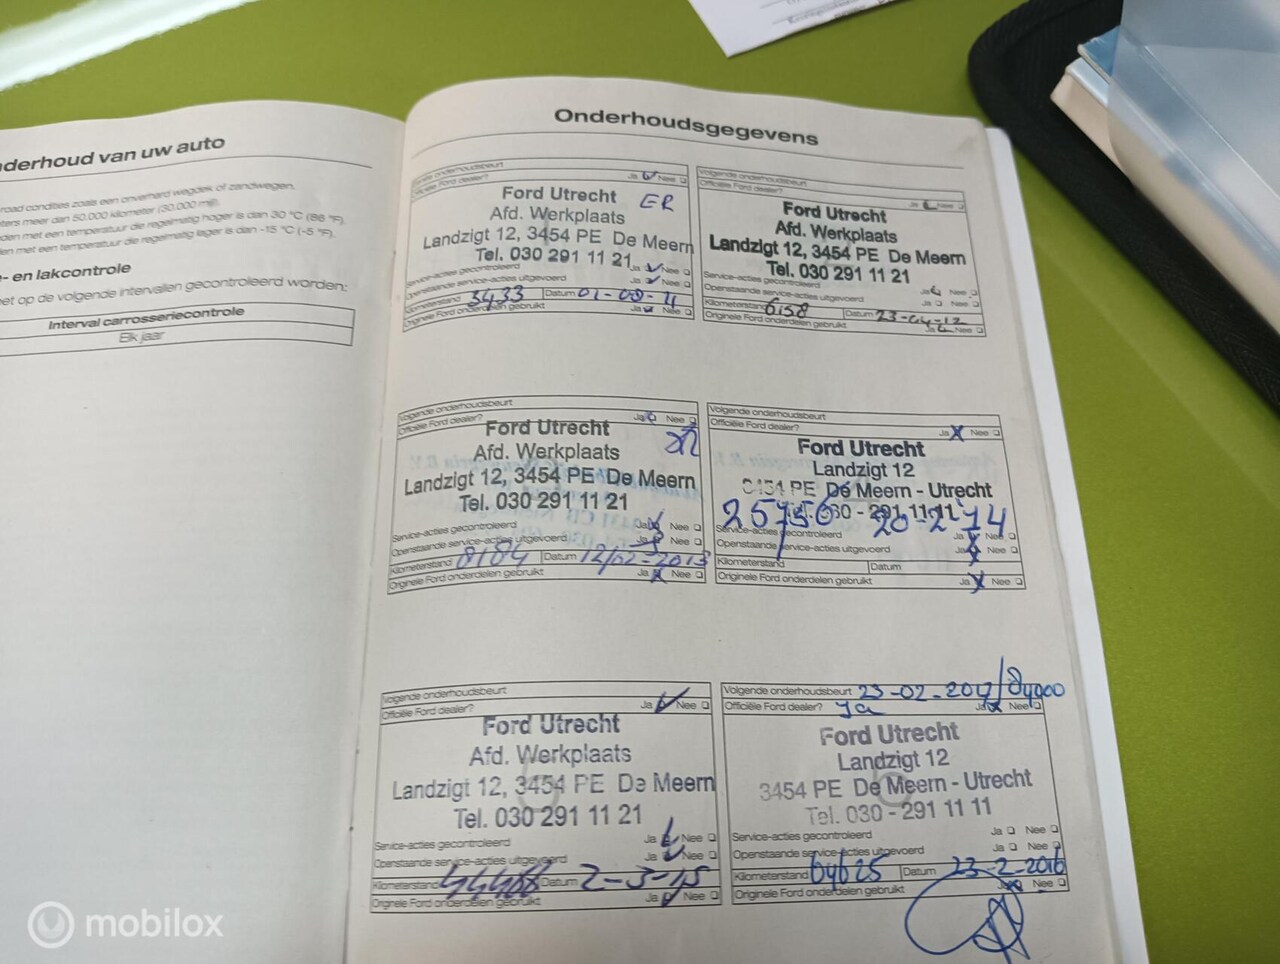 nderhoud van uw auto
road condities zoals een onverhard wegdek of zandwegen.
ters meer dan 50.000 kilometer (30.000 mijl).
den met een temperatuur die regelmatig hoger is dan 30 °C (86 °F).
len met een temperatuur die regelmatig lager is dan -15 °C (-5 °F).
- en lakcontrole
et op de volgende intervallen gecontroleerd worden:
Interval carrosseriecontrole
Elk jaar
Onderhoudsgegevens
onderhoudsbeurt
Officiële Ford dealer? Ja Nee
Ford Utrecht ER
Afd. Werkplaats
Landzigt 12, 3454 PE De Meern
Tel. 030 291 11 21
Service-acties gecontroleerd Ja Nee
Openstaande service-acties uitgevoerd Ja Nee
Kilometerstand 3433 Datum 01-08-11
Originele Ford onderdelen gebruikt Ja Nee
Volgende onderhoudsbeurt
Officiële Ford dealer? Ja Nee
Ford Utrecht
Afd. Werkplaats
Landzigt 12, 3454 PE De Meern
Tel. 030 291 11 21
Service-acties gecontroleerd Ja Nee
Openstaande service-acties uitgevoerd Ja Nee
Kilometerstand 6158 Datum 23-04-12
Originele Ford onderdelen gebruikt Ja Nee
Volgende onderhoudsbeurt
Officiële Ford dealer? Ja Nee
Ford Utrecht
Afd. Werkplaats
Landzigt 12, 3454 PE De Meern
Tel. 030 291 11 21
Service-acties gecontroleerd Ja Nee
Openstaande service-acties uitgevoerd Ja Nee
Kilometerstand 8184 Datum 12/02-2013
Originele Ford onderdelen gebruikt Ja Nee
Volgende onderhoudsbeurt
Officiële Ford dealer? Ja Nee
Ford Utrecht
Landzigt 12
3454 PE De Meern - Utrecht
Tel. 030 - 291 11 11
25756 20-2-14
Service-acties gecontroleerd Ja Nee
Openstaande service-acties uitgevoerd Ja Nee
Kilometerstand Datum
Originele Ford onderdelen gebruikt Ja Nee
Volgende onderhoudsbeurt
Officiële Ford dealer? Ja Nee
Ford Utrecht
Afd. Werkplaats
Landzigt 12, 3454 PE De Meern
Tel. 030 291 11 21
Service-acties gecontroleerd Ja Nee
Openstaande service-acties uitgevoerd Ja Nee
Kilometerstand 44468 Datum 2-3-15
Originele Ford onderdelen gebruikt Ja Nee
Volgende onderhoudsbeurt 23-02-2017/84000
Officiële Ford dealer? Ja Ja Nee
Ford Utrecht
Landzigt 12
3454 PE De Meern - Utrecht
Tel. 030 - 291 11 11
Service-acties gecontroleerd Ja Nee
Openstaande service-acties uitgevoerd Ja Nee
Kilometerstand 64625 Datum 23-2-2016
Originele Ford onderdelen gebruikt Ja Nee
mobilox